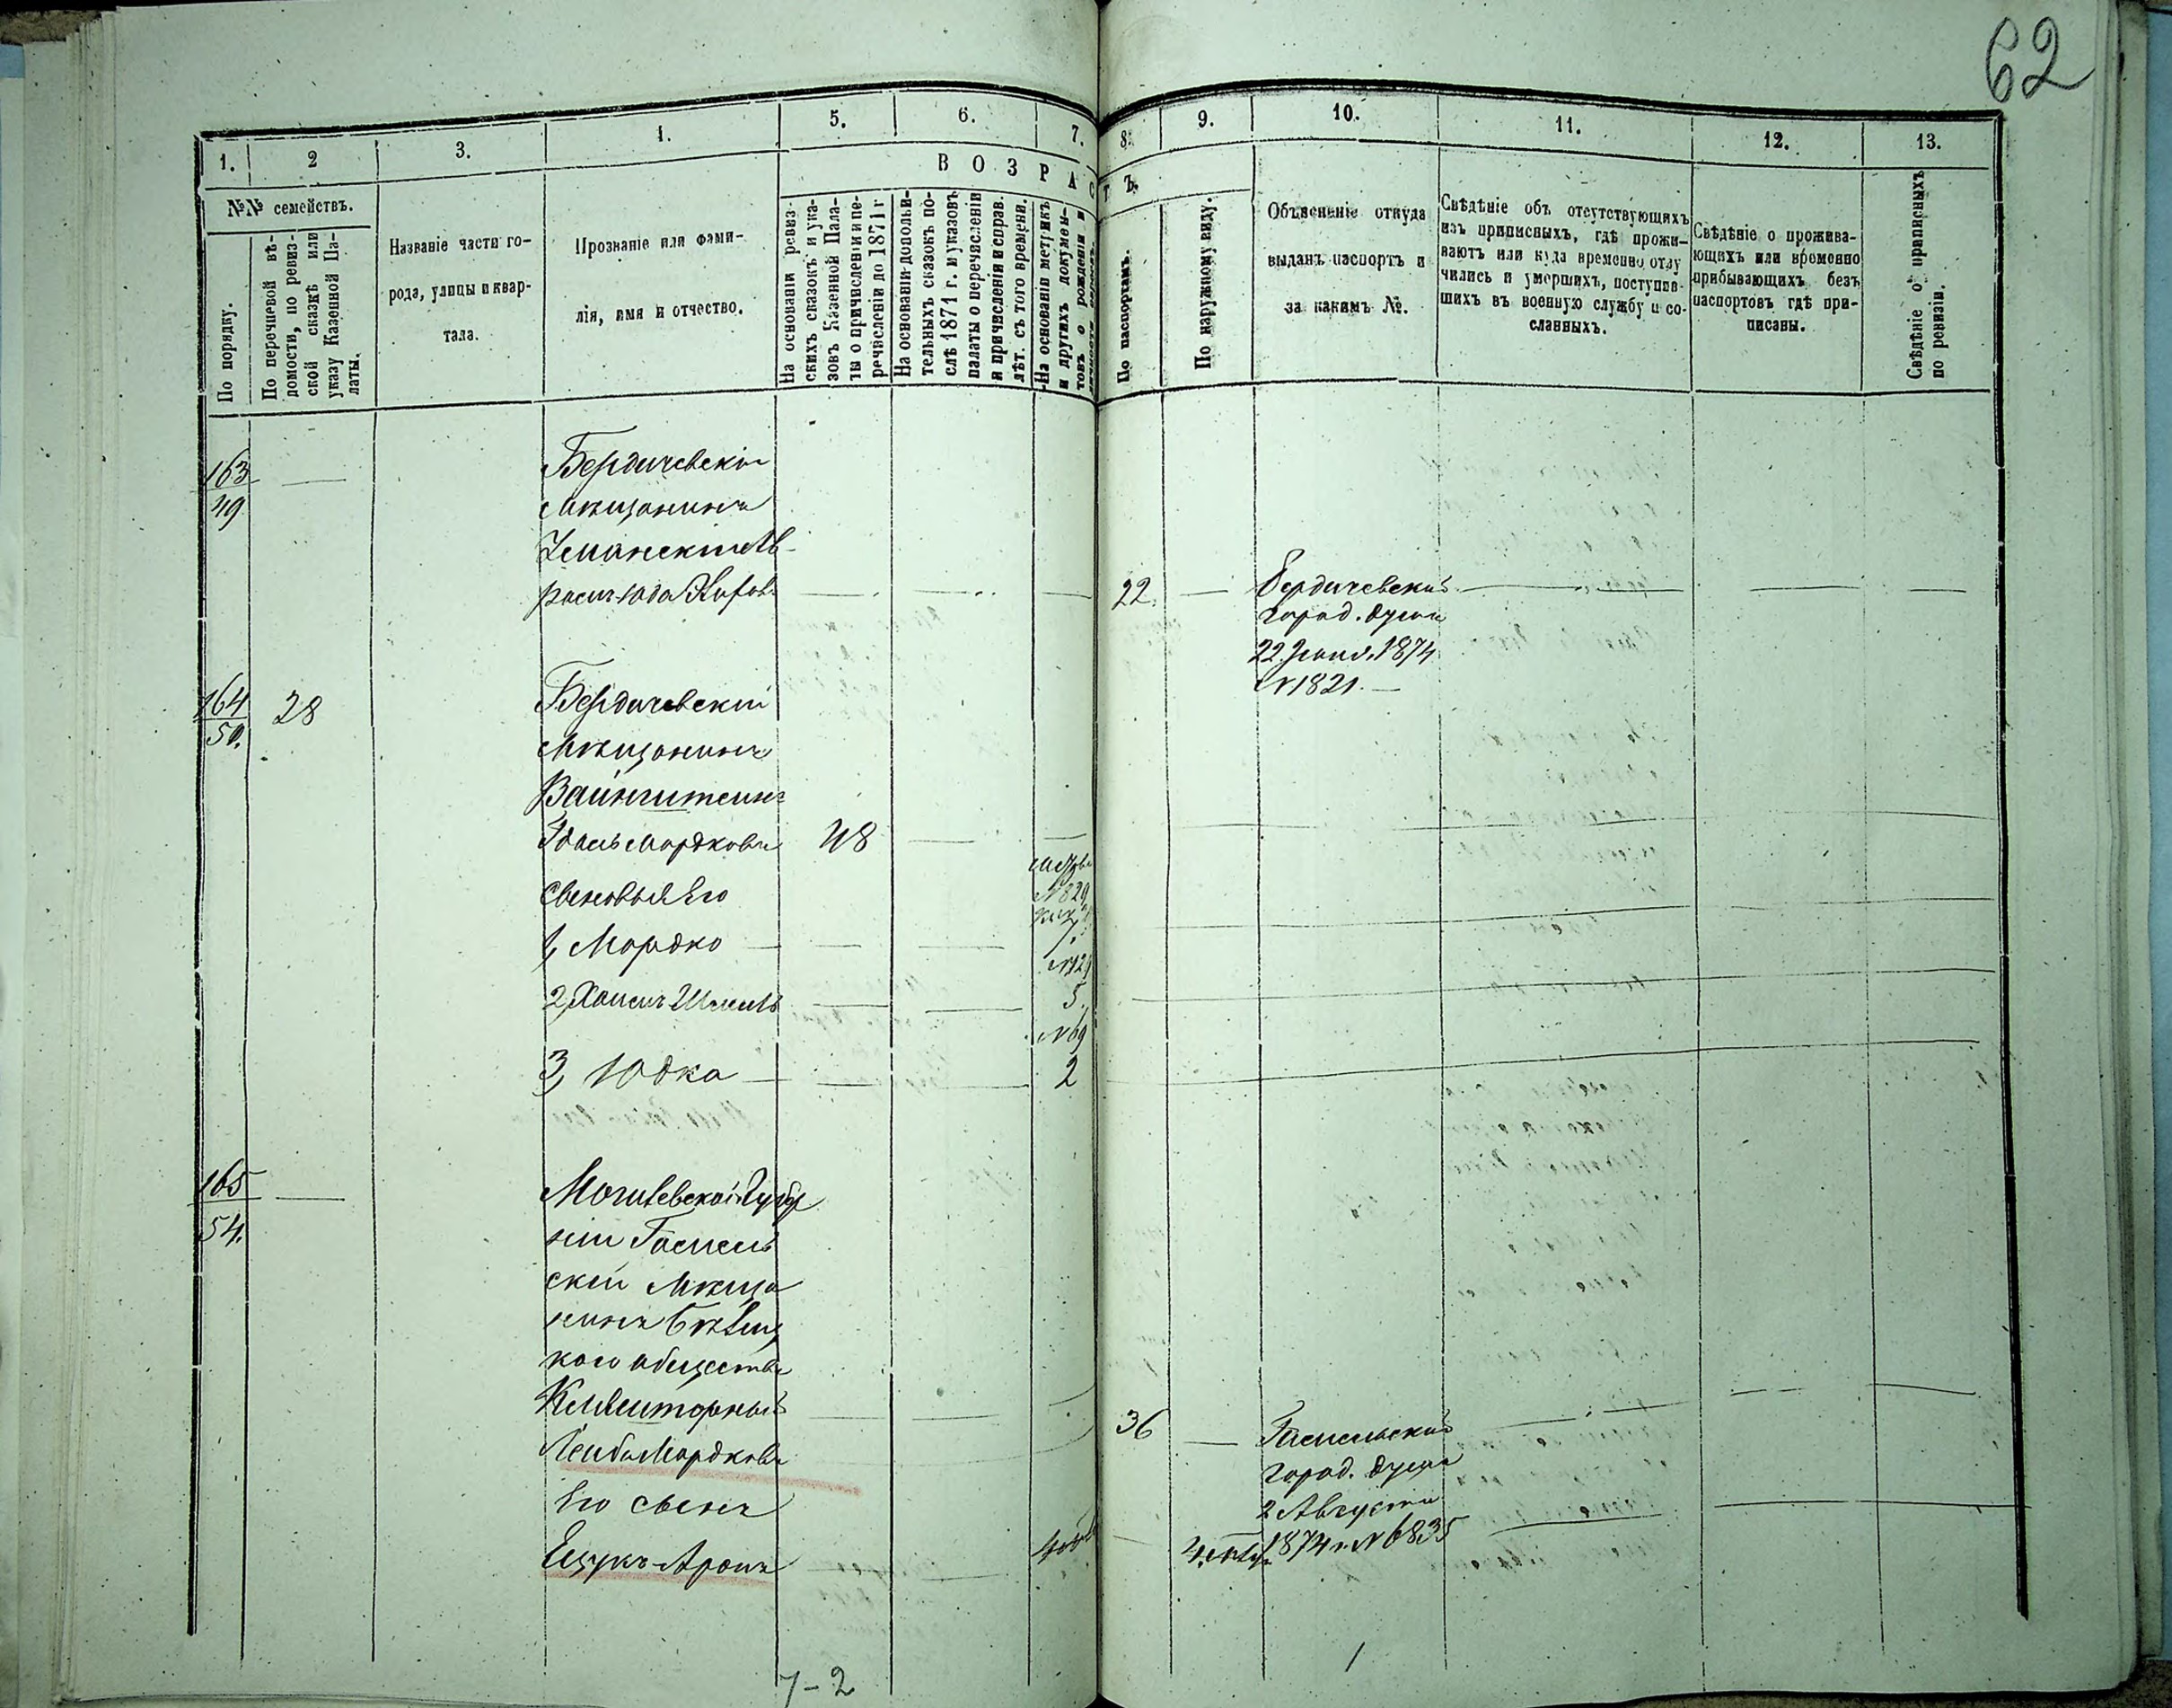 62
1.
2
3.
4.
5.
6.
7.
8.
9.
10.
11.
12.
13.
ВОЗРАСТЪ.
№№ семействъ.
По порядку.
По перечневой вѣ-
домости, по ревиз-
ской сказкѣ или
указу Казенной Па-
латы.
Названіе части го-
рода, улицы и квар-
тала.
Прозваніе или фами-
лія, имя и отчество.
На основаніи ревиз-
скихъ сказокъ и ука-
зовъ Казенной Пала-
ты о причисленіи и пе-
речисленіи до 1871 г
На основаніи дополни-
тельныхъ сказокъ по-
слѣ 1871 г. и указовъ
палаты о перечисленіи
и причисленіи и справ.
лѣт. съ того времени.
На основаніи метрикъ
и другихъ докумен-
товъ о рожденіи и
По паспортамъ.
По наружному виду.
Объясненіе откуда
выданъ паспортъ и
за какимъ №.
Свѣдѣніе объ отсутствующихъ
изъ приписныхъ, гдѣ прожи-
ваютъ или куда временно отлу
чились и умершихъ, поступив-
шихъ въ военную службу и со-
сланныхъ.
Свѣдѣніе о прожива-
ющихъ или временно
прибывающихъ безъ
паспортовъ гдѣ при-
писаны.
Свѣдѣніе о приписныхъ
по ревизіи.
163
49
Бердичевскій
Мѣщанинъ
Уманскій Ав-
румъ-Юда
22.
Бердичевской
город. думы
22 1874
№1821.
164
50.
28
Бердичевскій
Мѣщанинъ
Вайнштейнъ
Удаль Мордковъ
48
Сыновья Его
№829
1, Мордко
7.
№129
2, Хаимъ Шмиль
5.
№69
3, Юдка
2
165
54.
Могилевской Губер
ніи Гомель
скій Мѣща
нинъ Бѣлиц
кого общества
Клейнторный
Лейба Мордковъ
36
Гомельской
город. думы
2 Августа
1874 г. №6835
Его сынъ
Ицукъ-Аронъ
7-2